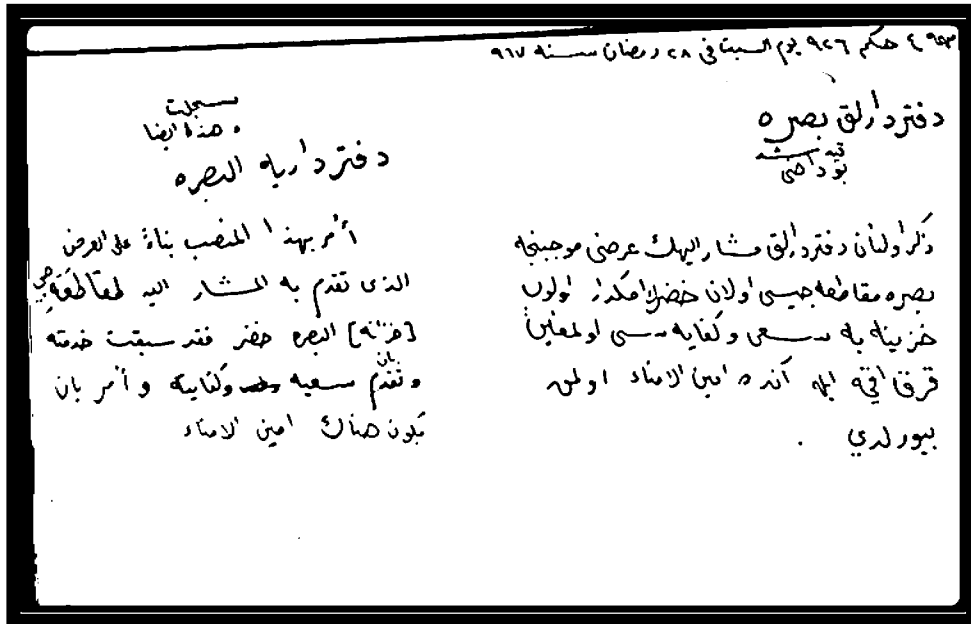 ٤ حكم ٩٢٦ يوم السبت في ٢٨ رمضان سنة ٩٦٧
دفتردارلق بصره
بو داخى
ذكر اولنان دفتردارلق مشار اليهك عرضى موجبنجه
بصره مقاطعه جيسى اولان خضرك امكدار اولوب
خزينه يه سعى وكفايه سى اولمغين
قرق اقچه ايله آنده امين الامناء اولمق
بيورلدي .
سجلت
وهذه ايضا
دفتردارية البصره
أمر بهذا المنصب بناءً على العرض
الذى تقدم به المشار اليه لمقاطعه جي
[خزانة] البصره خضر فقد سبقت خدمته
وتقدم بان سعيه وكفايته وأمر بان
يكون هناك امين الامناء